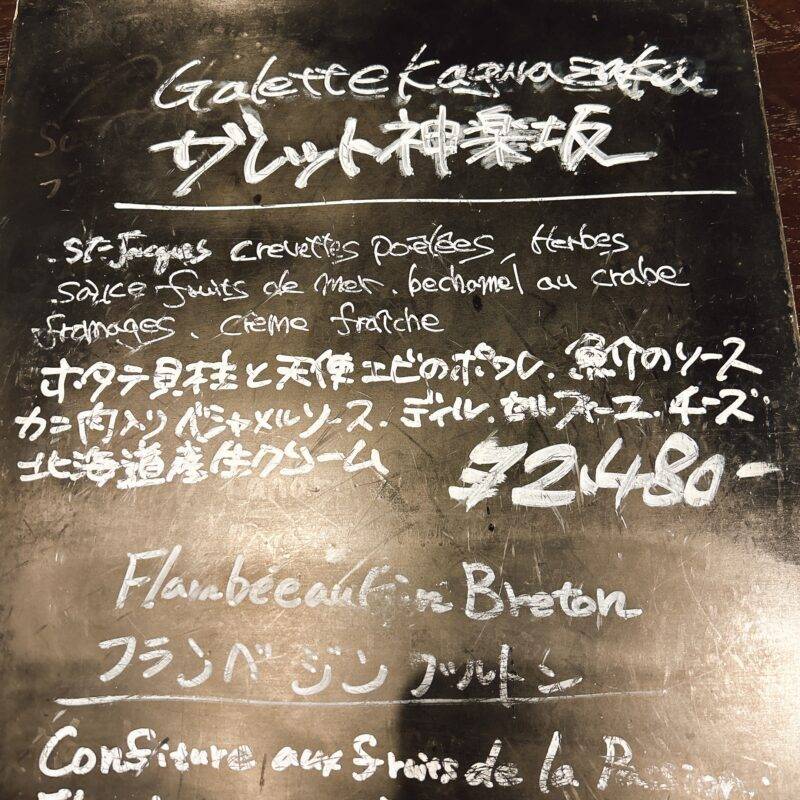 Galette Kagurazaka
ガレット神楽坂
St-Jacques crevettes poélées, Herbes
sauce fruits de mer. bechamel au crabe
fromages. crème fraîche
ホタテ貝柱と天使エビのポワレ. 魚介のソース
カニ肉入りベシャメルソース. ディル. セルフィーユ. チーズ
北海道産生クリーム ¥2,480-
Flambée au Gin Breton
フランベージンブルトン
Confiture aux fruits de la Passion